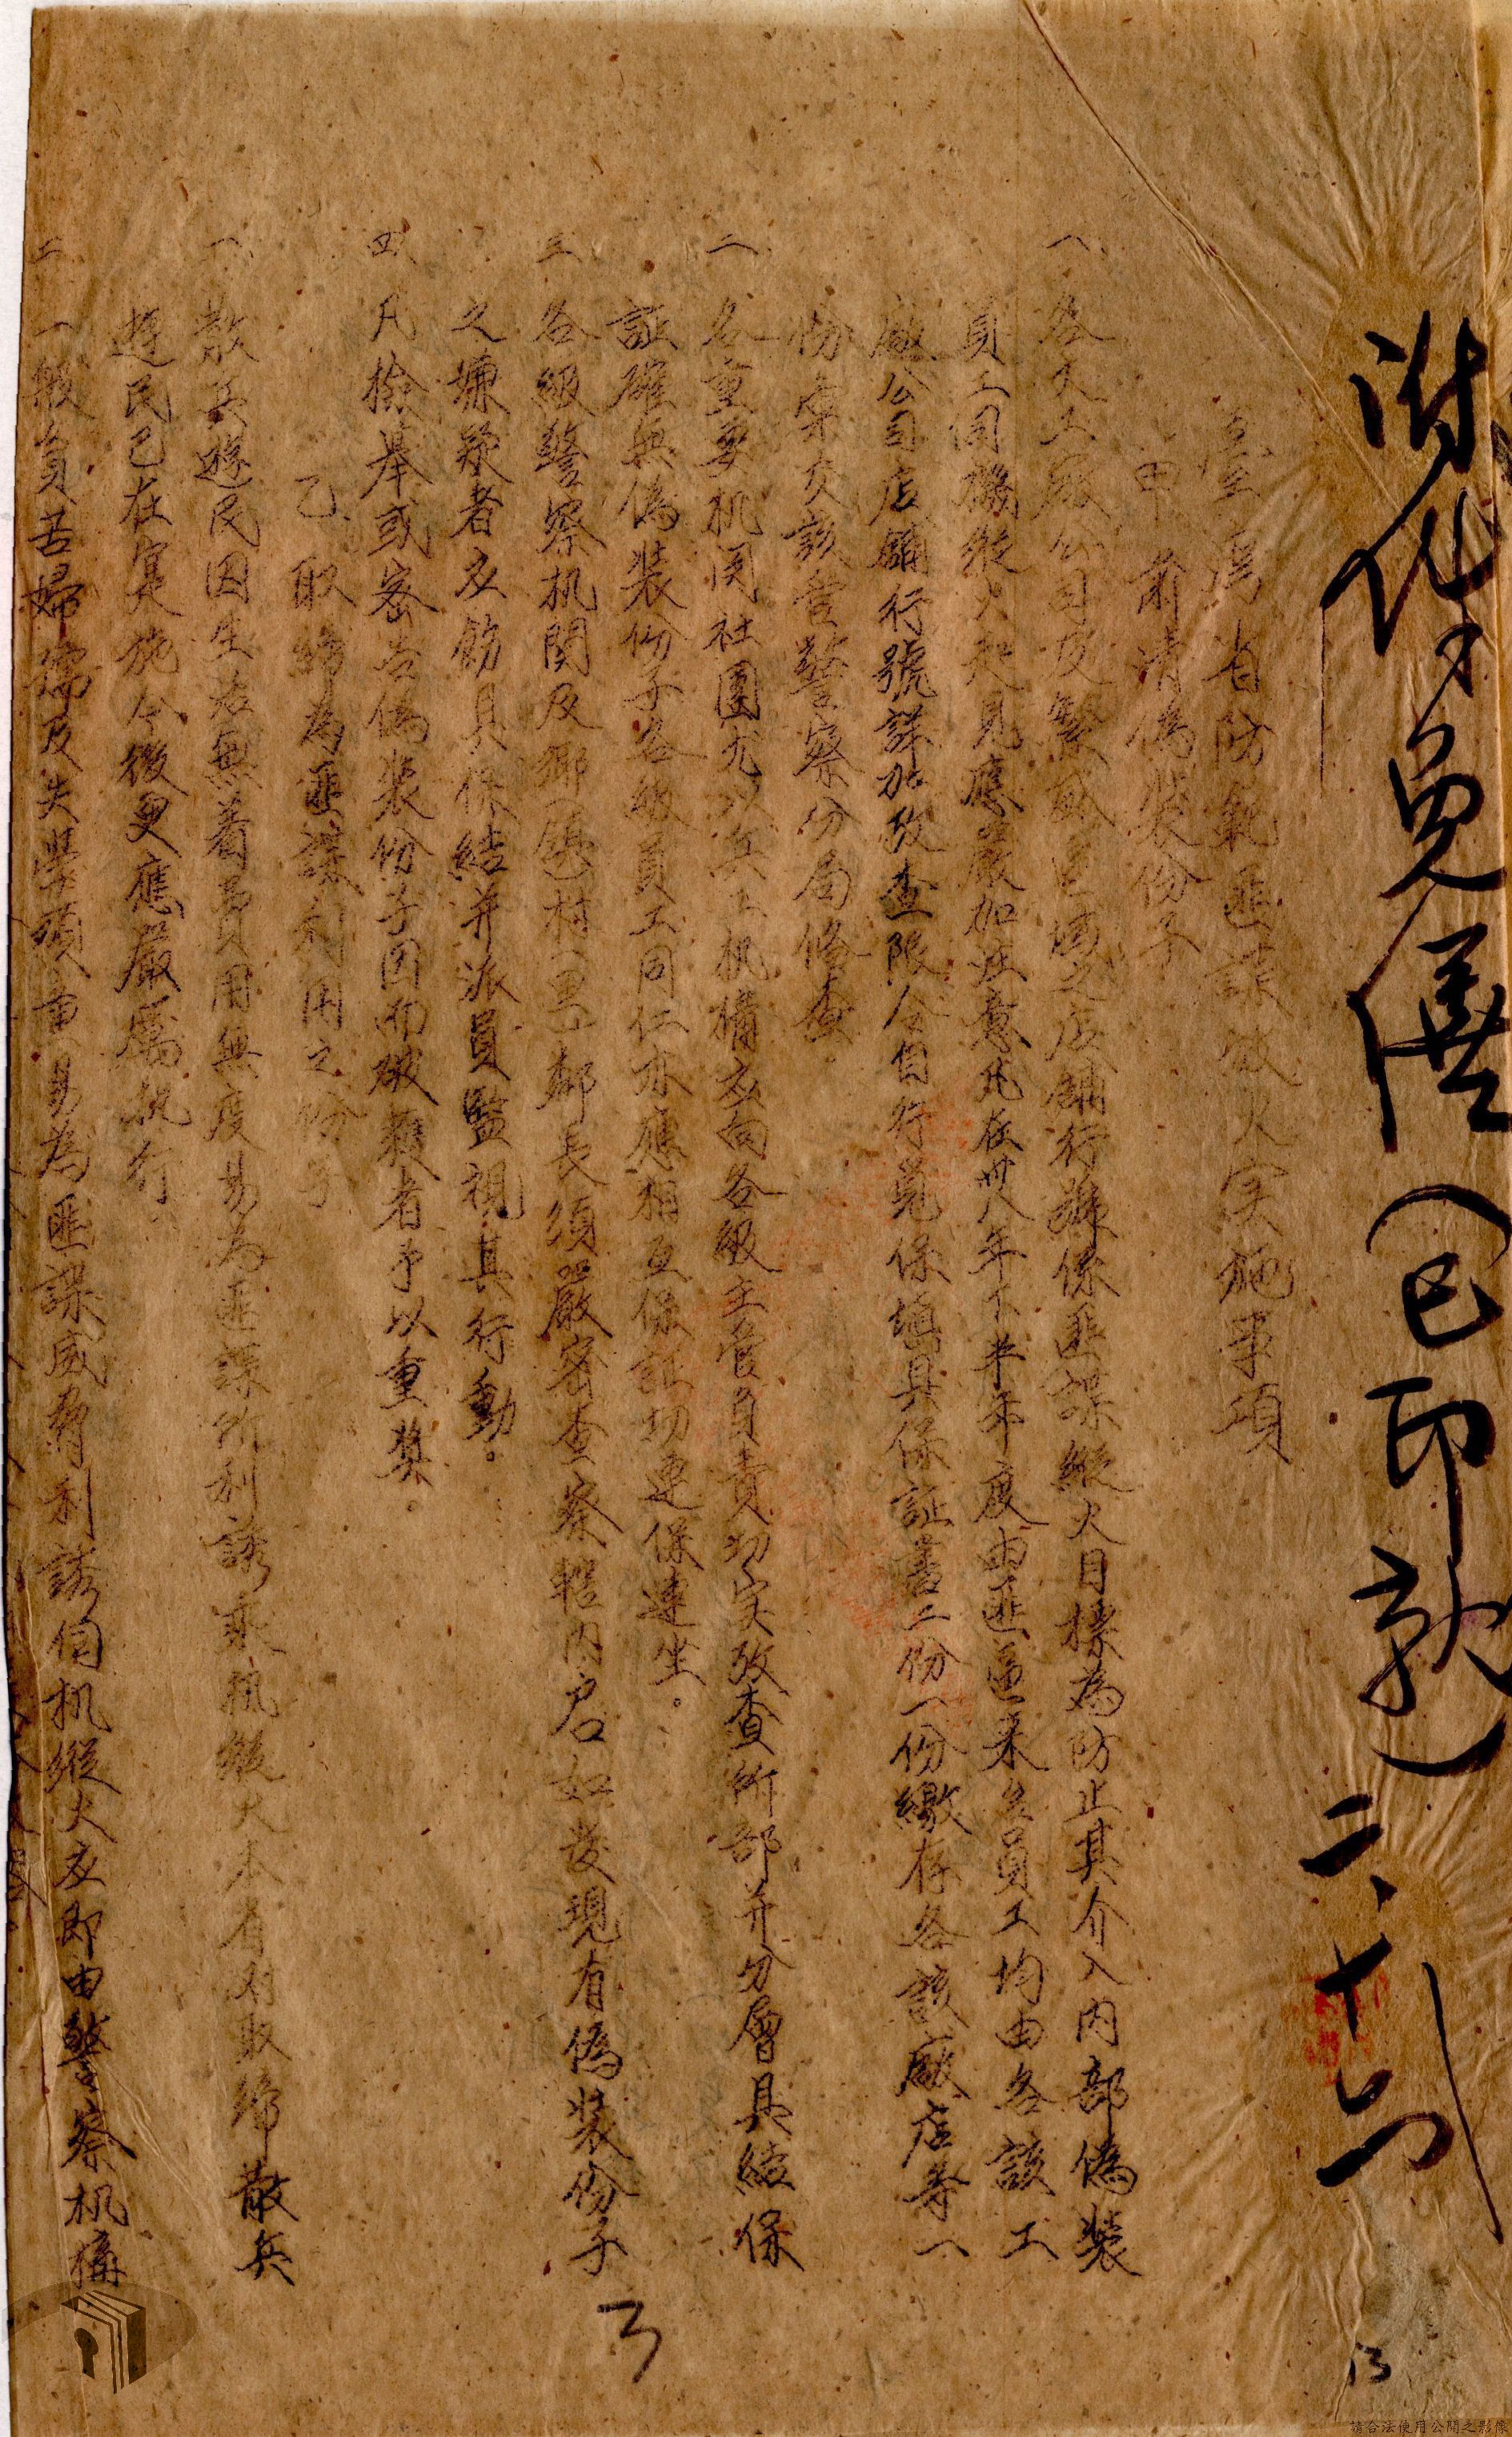 附件免繕（已印就）二、十六
臺湾省防範匪諜放火实施事項
甲、肅清偽裝份子
一、各大工廠公司及繁盛區域之店舖行號係匪諜縱火目標為防止其介入内部偽裝
員工伺機縱火起見應嚴加注意凡在卅八年下半年度由匪區来台員工均由各該工
廠公司店舖行號詳加攷查限令自行覓保填具保証書二份一份繳存各該廠店等一
份彙交該管警察分局俻查。
二、各重要机関社團尤以兵工机構应向各級主管負責切实攷查所部并分層具結保
証確無偽裝份子各級員工同仁亦應相互保証切連保連坐。
三、各級警察机関及鄉(鎮)村(里)鄰長須嚴密查察轄内居如發現有偽裝份子
之嫌疑者应飭具保結并派員監視其行動。
四、凡檢舉或密告偽裝份子因而破獲者予以重奖。
乙、取締為匪諜利用之份子
一、散兵遊民因生活無着費用無度易為匪諜所利誘乘机縱火本省对取締散兵
遊民已在实施今後更應嚴厲执行
二、一般貧苦婦孺及失學頑童易為匪諜威脅利誘伺机縱火应即由警察机構
3
13
請合法使用公開之影像